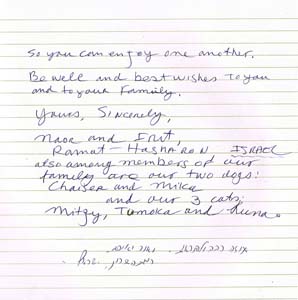 So you can enjoy one another.
Be well and best wishes to you
and to your family.
Yours, Sincerely,
and
Ramat-Hasharon ISRAEL
also among members of our
family are our two dogs:
and Mika
and our 3 cats:
Mitzy, Tomoka and Luna.